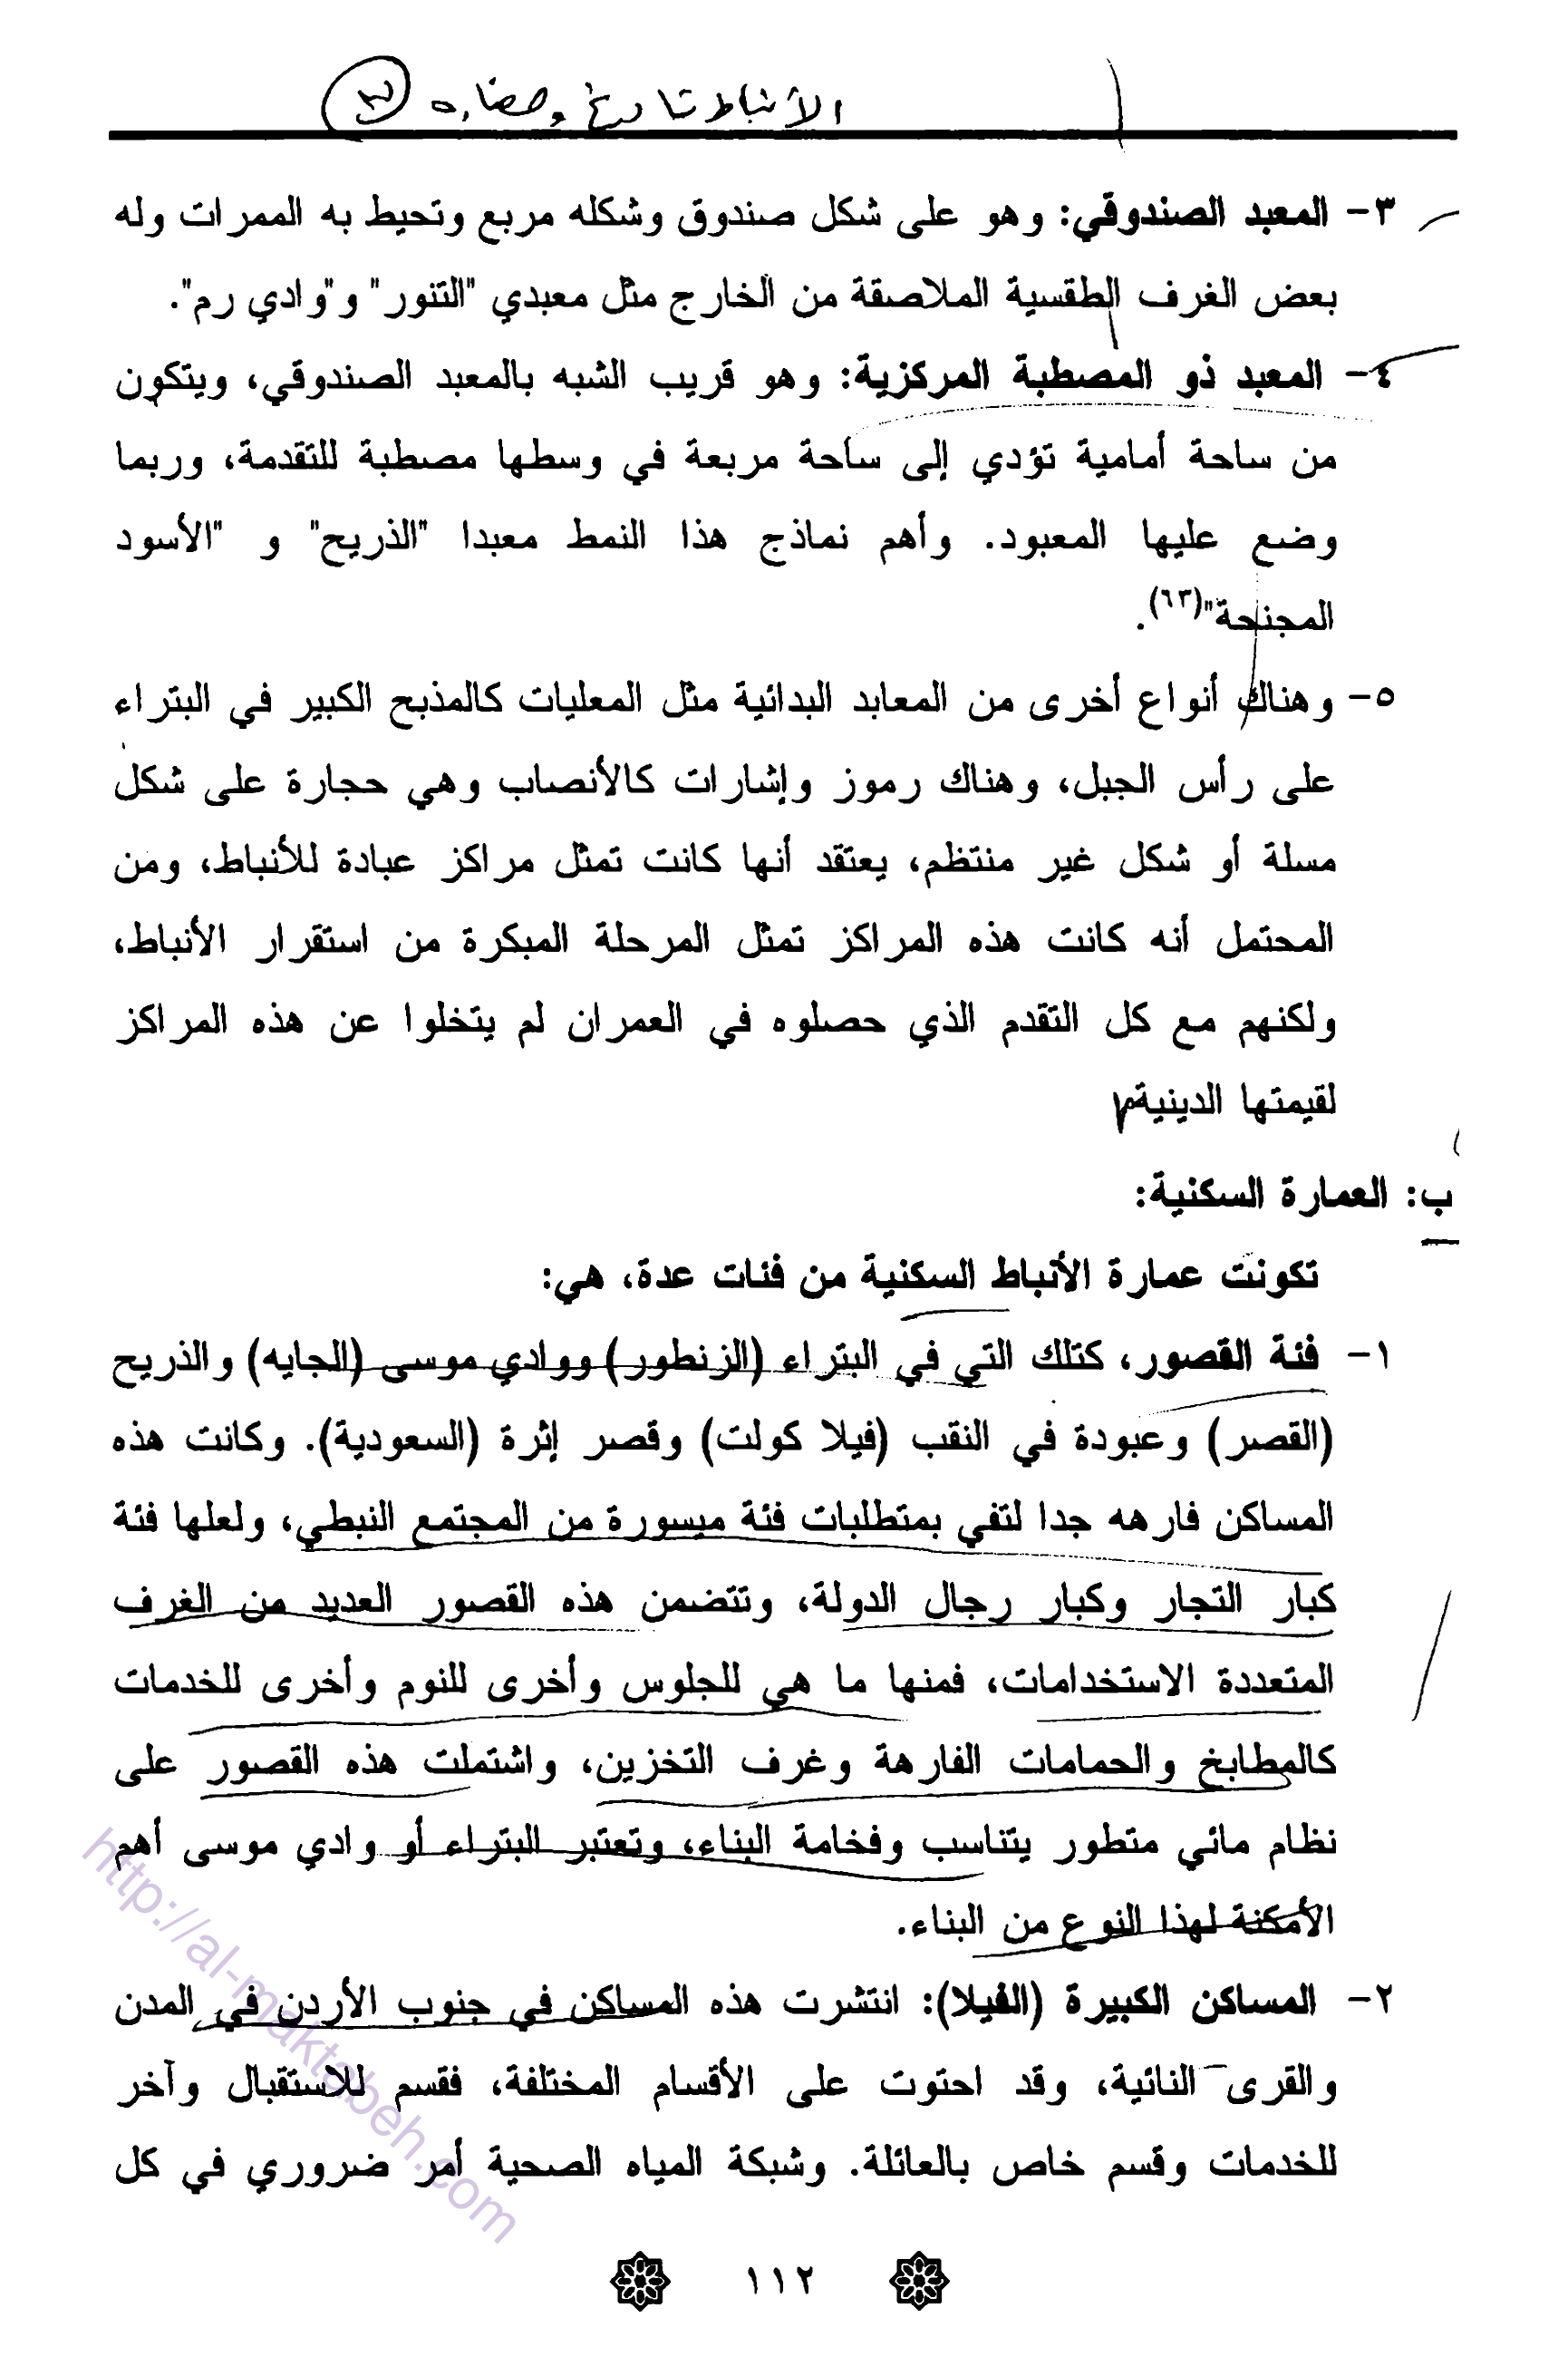 الأنباط تاريخ وحضارة ٣
٣- المعبد الصندوقي: وهو على شكل صندوق وشكله مربع وتحيط به الممرات وله
بعض الغرف الطقسية الملاصقة من الخارج مثل معبدي "التنور" و"وادي رم".
٤- المعبد ذو المصطبة المركزية: وهو قريب الشبه بالمعبد الصندوقي، ويتكون
من ساحة أمامية تؤدي إلى ساحة مربعة في وسطها مصطبة للتقدمة، وربما
وضع عليها المعبود. وأهم نماذج هذا النمط معبدا "الذريح" و "الأسود
المجنحة"(٦٣).
٥- وهناك أنواع أخرى من المعابد البدائية مثل المعليات كالمذبح الكبير في البتراء
على رأس الجبل، وهناك رموز وإشارات كالأنصاب وهي حجارة على شكل
مسلة أو شكل غير منتظم، يعتقد أنها كانت تمثل مراكز عبادة للأنباط، ومن
المحتمل أنه كانت هذه المراكز تمثل المرحلة المبكرة من استقرار الأنباط،
ولكنهم مع كل التقدم الذي حصلوه في العمران لم يتخلوا عن هذه المراكز
لقيمتها الدينية
ب: العمارة السكنية:
تكونت عمارة الأنباط السكنية من فئات عدة، هي:
١- فئة القصور، كتلك التي في البتراء (الزنطور) ووادي موسى (الجايه) والذريح
(القصر) وعبودة في النقب (فيلا كولت) وقصر إثرة (السعودية). وكانت هذه
المساكن فارهه جدا لتفي بمتطلبات فئة ميسورة من المجتمع النبطي، ولعلها فئة
كبار التجار وكبار رجال الدولة، وتتضمن هذه القصور العديد من الغرف
المتعددة الاستخدامات، فمنها ما هي للجلوس وأخرى للنوم وأخرى للخدمات
كالمطابخ والحمامات الفارهة وغرف التخزين، واشتملت هذه القصور على
نظام مائي متطور يتناسب وفخامة البناء، وتعتبر البتراء أو وادي موسى أهم
الأمكنة لهذا النوع من البناء.
٢- المساكن الكبيرة (الفيلا): انتشرت هذه المساكن في جنوب الأردن في المدن
والقرى النائية، وقد احتوت على الأقسام المختلفة، فقسم للاستقبال وآخر
للخدمات وقسم خاص بالعائلة. وشبكة المياه الصحية أمر ضروري في كل
١١٢
http://al-maktabeh.com